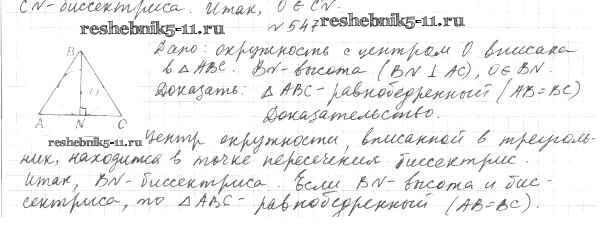 CN-биссектриса. Итак, O ∈ CN.
reshebnik5-11.ru
№ 547
reshebnik5-11.ru
B
Дано: окружность с центром O вписана
в △ABC. BN-высота (BN ⊥ AC), O∈BN.
O
Доказать: △ABC-равнобедренный (AB=BC)
A N C
Доказательство.
reshebnik5-11.ru
Центр окружности, вписанной в треуголь-
ник, находится в точке пересечения биссектрис.
Итак, BN-биссектриса. Если BN-высота и бис-
сектриса, то △ABC- равнобедренный (AB=BC).